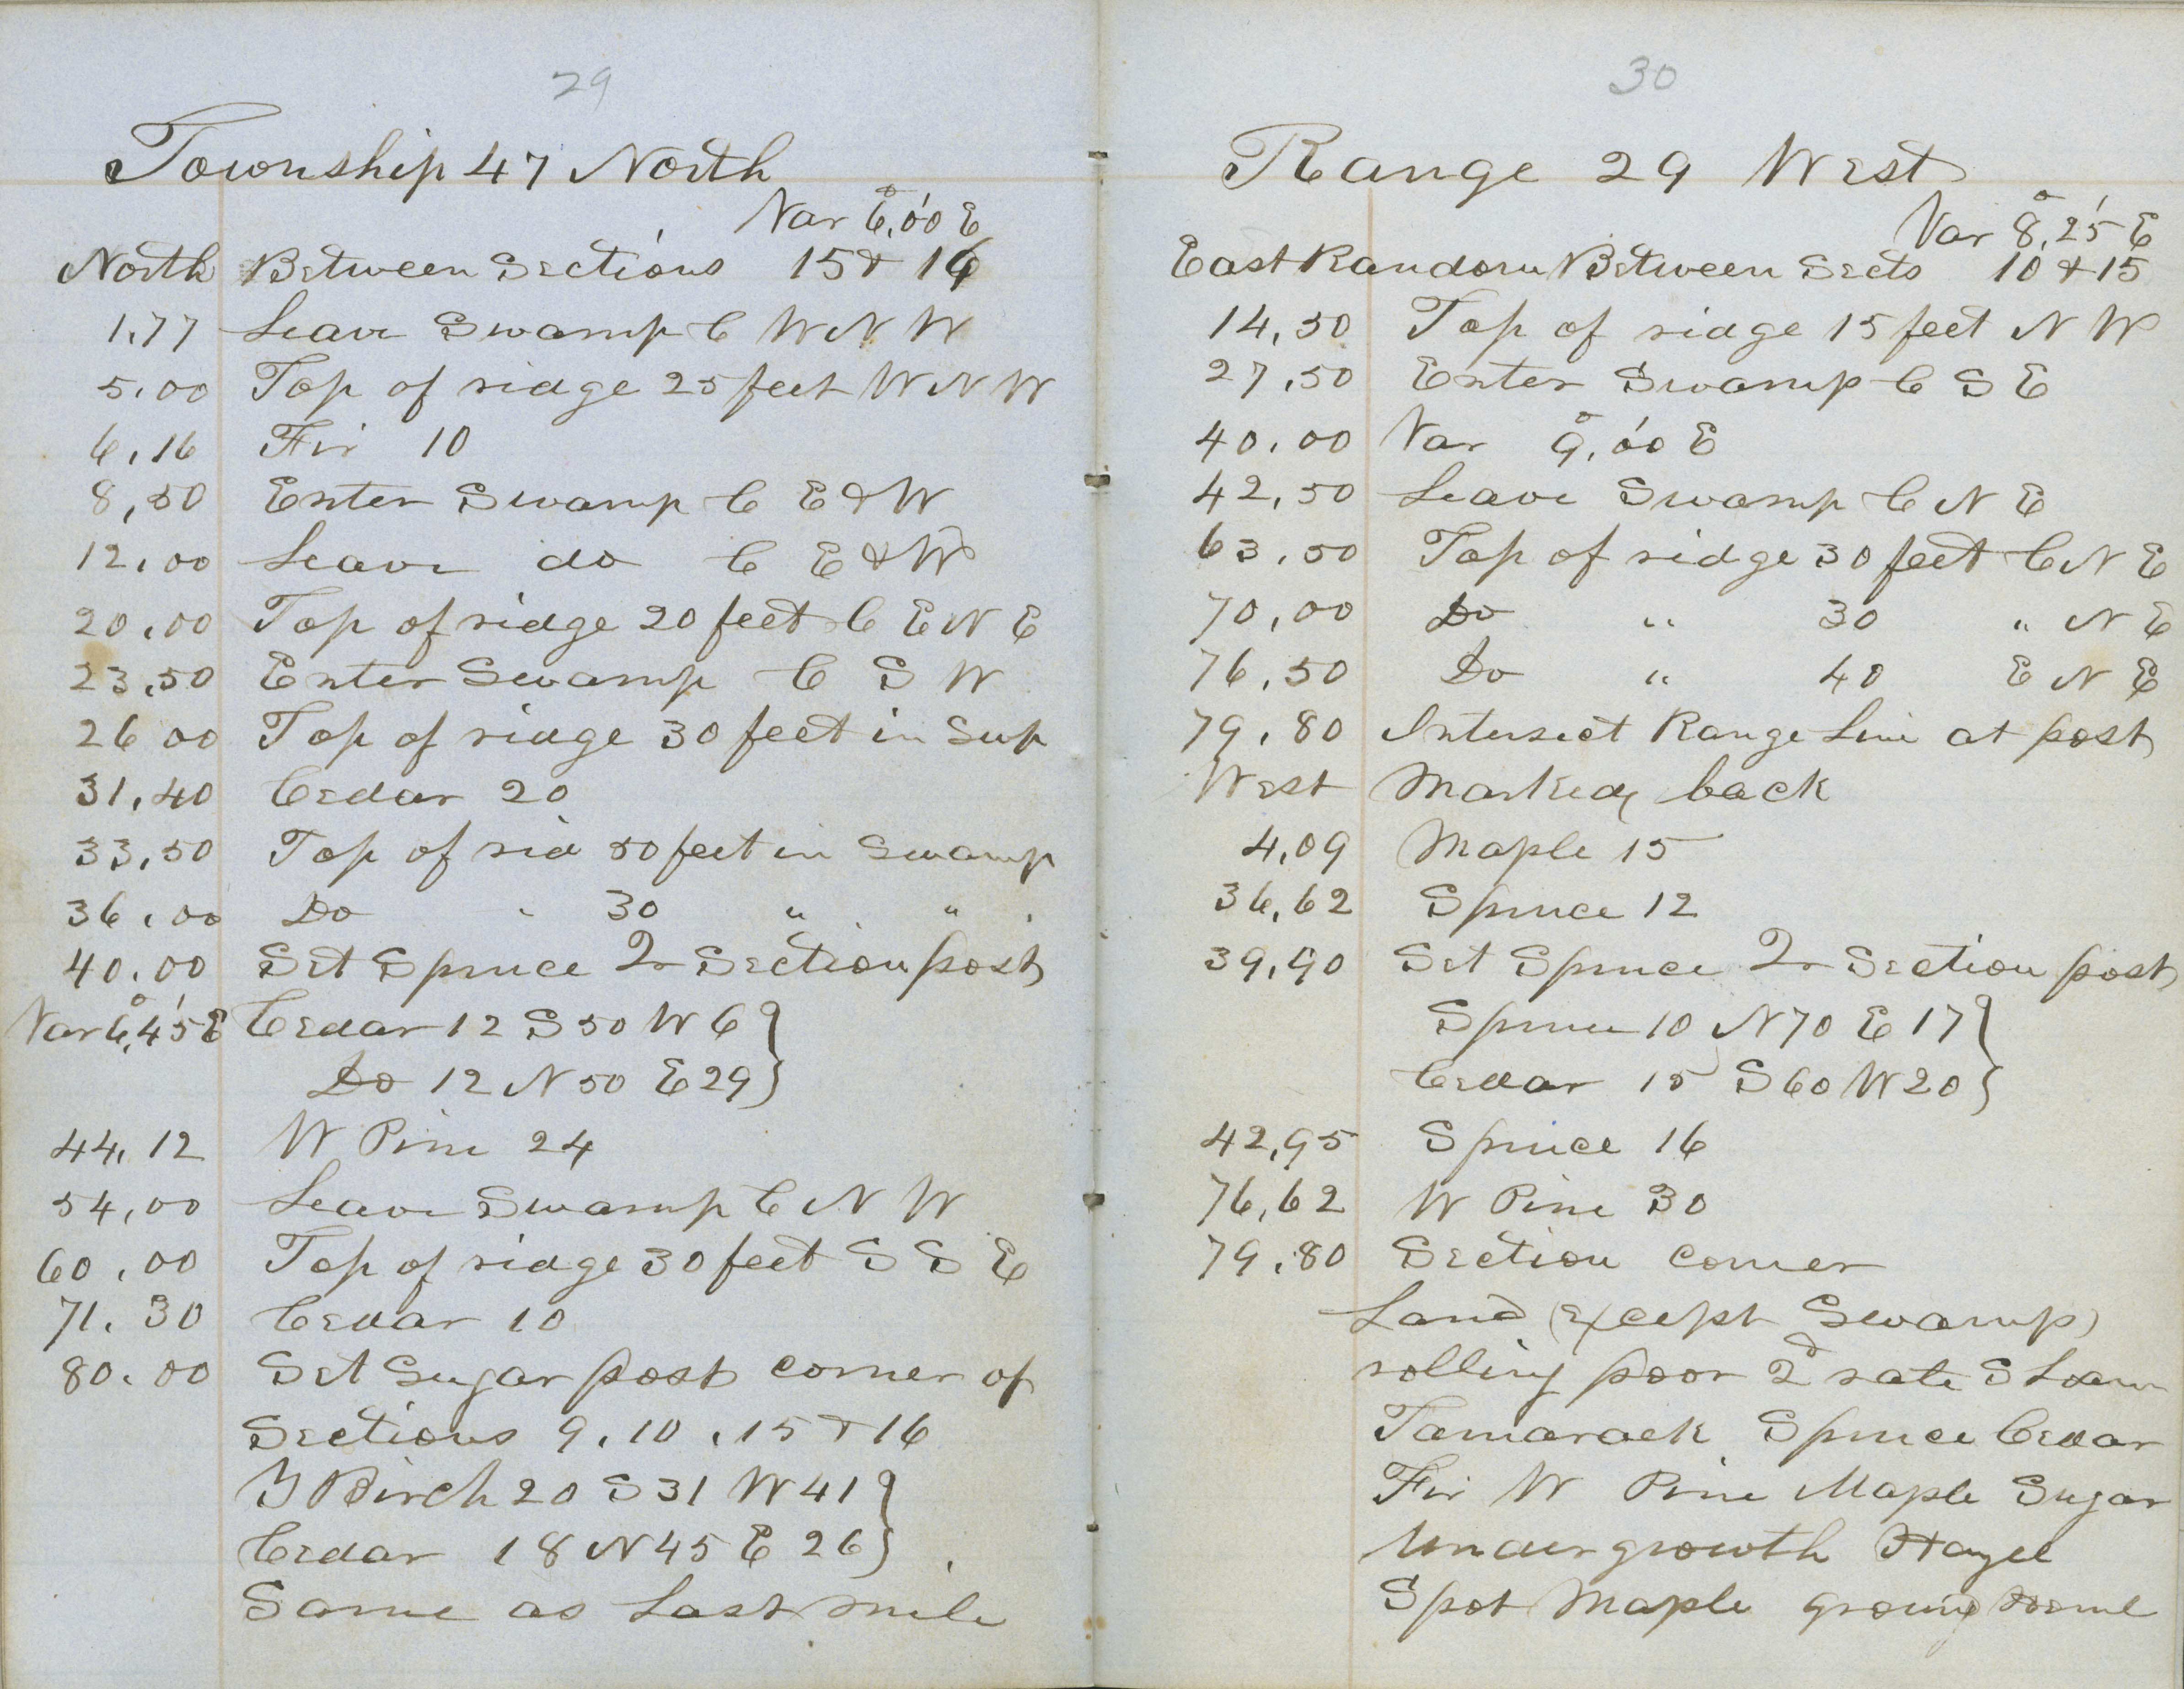 29
Township 47 North
Var 6°,00' E
North Between Sections 15 & 16
1.77 Leave Swamp C W N W
5.00 Top of ridge 25 feet W N W
6.16 Fir 10
8,50 Enter Swamp C E & W
12.00 Leave do C E & W
20.00 Top of ridge 20 feet C E N E
23.50 Enter Swamp C S W
26 00 Top of ridge 30 feet in Swp
31,40 Cedar 20
33,50 Top of rid 50 feet in Swamp
36.00 Do " 30 " "
40.00 Set Spruce Qr Section post
Var 6°,45' E Cedar 12 S 50 W 6 }
Do 12 N 50 E 29 }
44,12 W Pine 24
54,00 Leave Swamp C N W
60.00 Top of ridge 30 feet S S E
71.30 Cedar 10
80.00 Set Sugar post corner of
Sections 9,10,15 & 16
Y Birch 20 S 31 W 41 }
Cedar 18 N 45 E 26 }
Same as Last mile
30
Range 29 West
Var 8°,25' E
East Random Between Sects 10 & 15
14,50 Top of ridge 15 feet N W
27,50 Enter Swamp C S E
40.00 Var 9°,00' E
42,50 Leave Swamp C N E
63.50 Top of ridge 30 feet C N E
70,00 Do " 30 " N E
76,50 Do " 40 E N E
79.80 Intersect Range Line at post
West Marked back
4,09 Maple 15
36,62 Spruce 12
39,90 Set Spruce Qr Section post
Spruce 10 N 70 E 17 }
Cedar 15 S 60 W 20 }
42,95 Spruce 16
76,62 W Pine 30
79.80 Section corner
Land (Except Swamp)
rolling poor 2d rate S Loam
Tamarack Spruce Cedar
Fir W Pine Maple Sugar
Undergrowth Hazel
Spot Maple ground